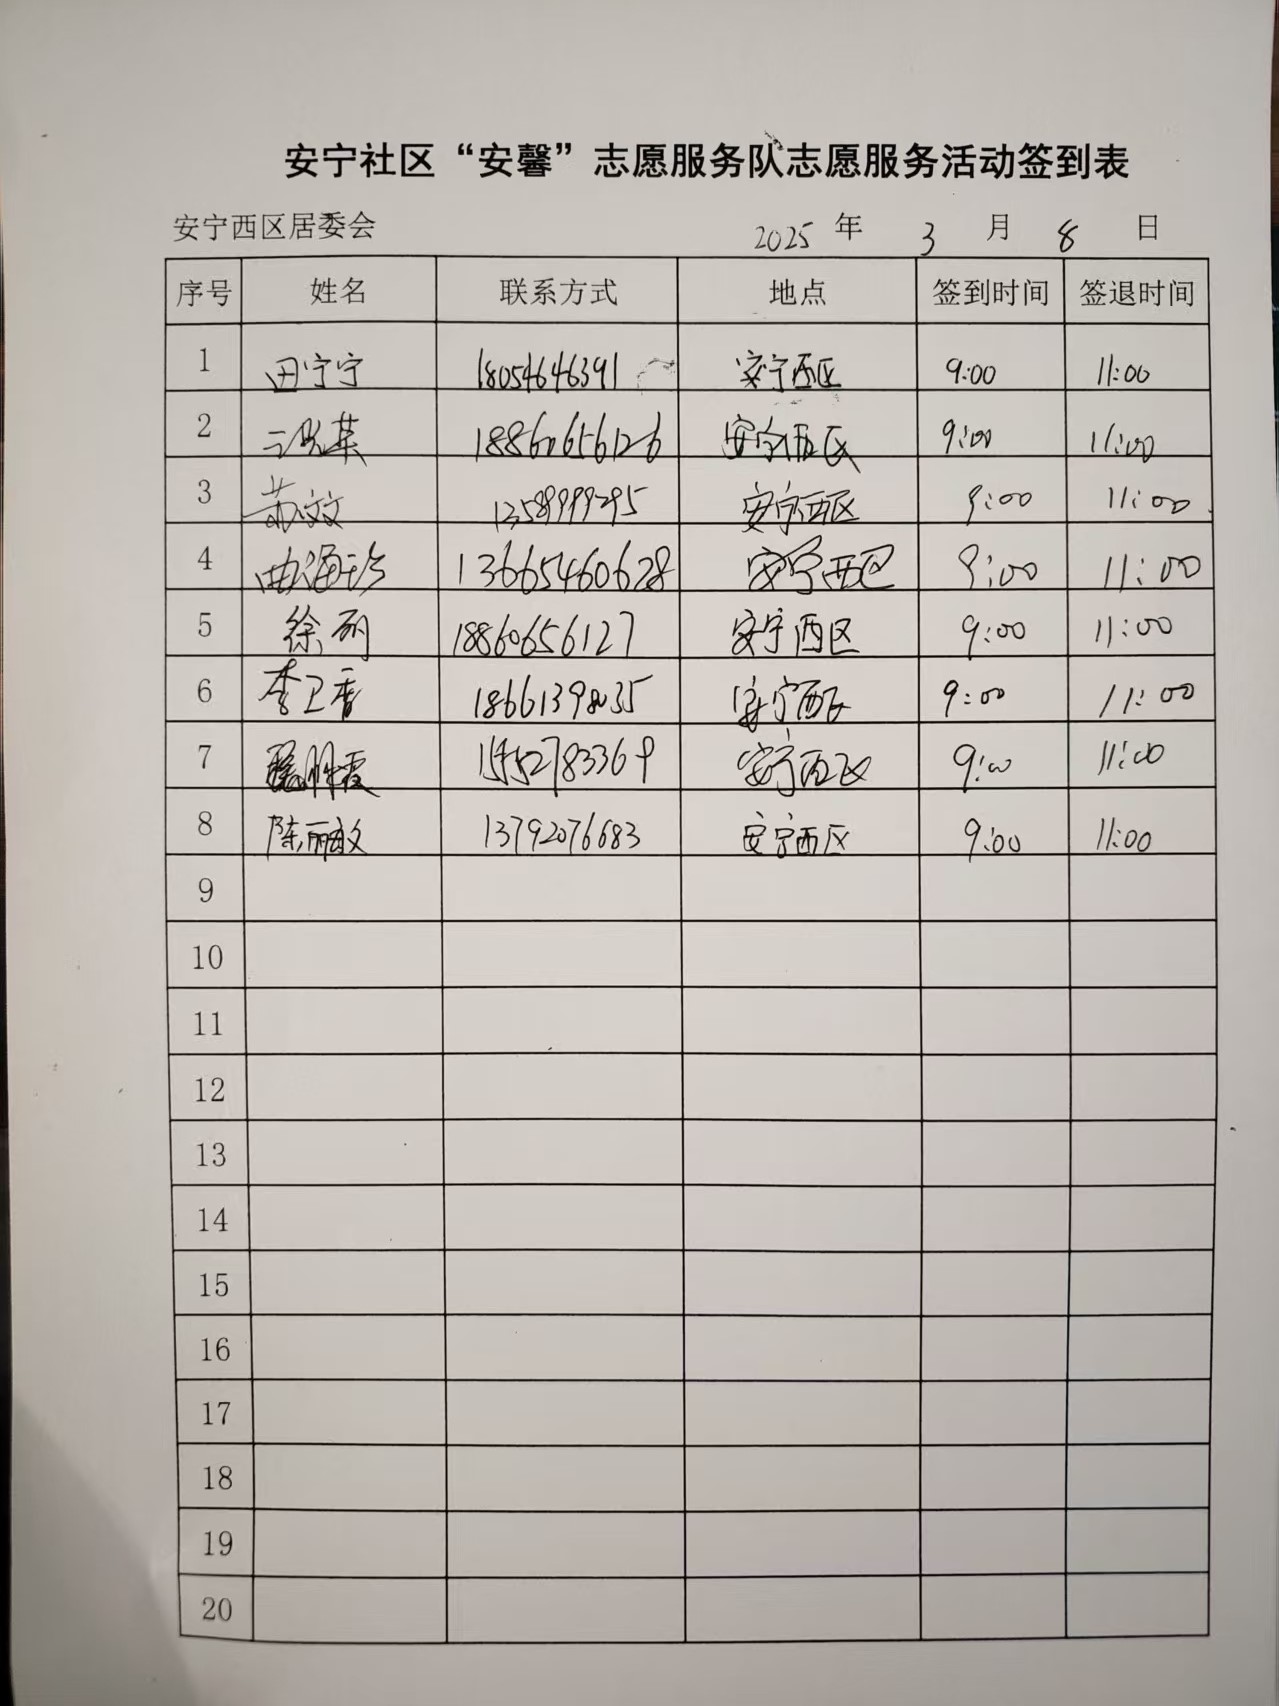 安宁社区“安馨”志愿服务队志愿服务活动签到表
安宁西区居委会 2025 年 3 月 8 日
序号 姓名 联系方式 地点 签到时间 签退时间
1 田宁宁 18054646391 安宁西区 9:00 11:00
2 18860656126 安宁西区 9:00 11:00
3 苏文文 13589999295 安宁西区 9:00 11:00
4 曲海珍 13665460628 安宁西区 9:00 11:00
5 徐丽 18860656127 安宁西区 9:00 11:00
6 李卫香 18661398035 安宁西区 9:00 11:00
7 安宁西区 9:00 11:00
8 陈丽敏 13792076683 安宁西区 9:00 11:00
9
10
11
12
13
14
15
16
17
18
19
20